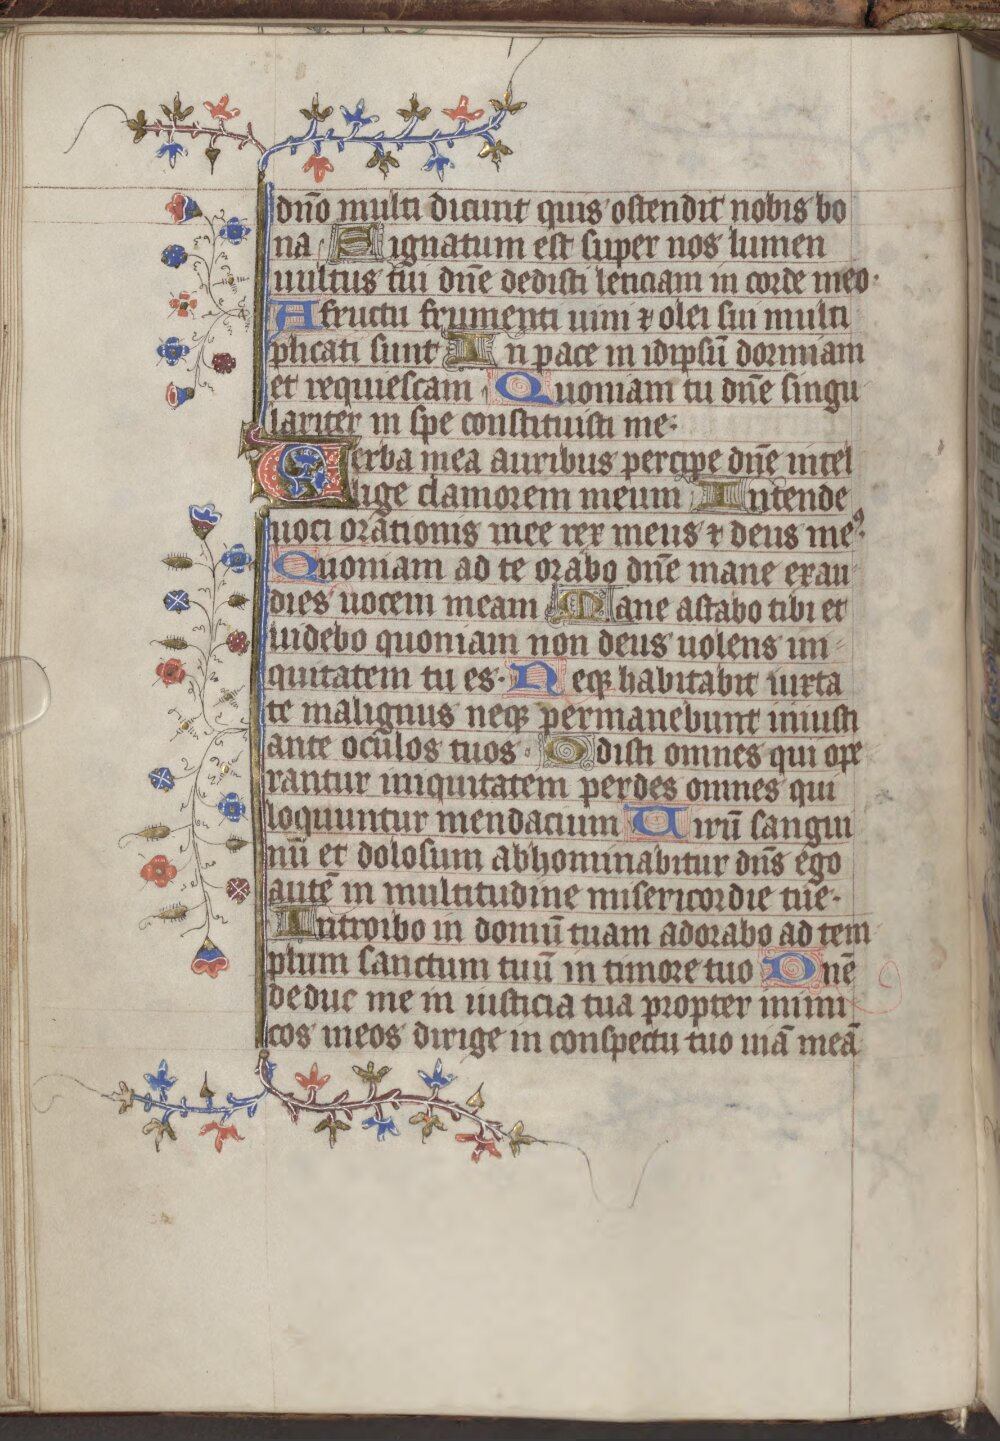 dño multi dicunt quis ostendit nobis bo
na Signatum est super nos lumen
uultus tui dñe dedisti leticiam in corde meo·
A fructu frumenti uini ⁊ olei sui multi
plicati sunt In pace in idipsũ dormiam
et requiescam Quoniam tu dñe singu
lariter in spe constituisti me·
Verba mea auribus percipe dñe intel
lige clamorem meum Intende
uoci orationis mee rex meus ⁊ deus meꝰ·
Quoniam ad te orabo dñe mane exau
dies uocem meam Mane astabo tibi et
uidebo quoniam non deus uolens ini
quitatem tu es· Neqꝫ habitabit iuxta
te malignus neqꝫ permanebunt iniusti
ante oculos tuos· Odisti omnes qui ope
rantur iniquitatem perdes omnes qui
loquuntur mendacium Uirũ sangui
nũ et dolosum abhominabitur dñs ego
autẽ in multitudine misericordie tue·
Introibo in domũ tuam adorabo ad tem
plum sanctum tuũ in timore tuo Dñe
deduc me in iusticia tua propter inimi
cos meos dirige in conspectu tuo uiã meã